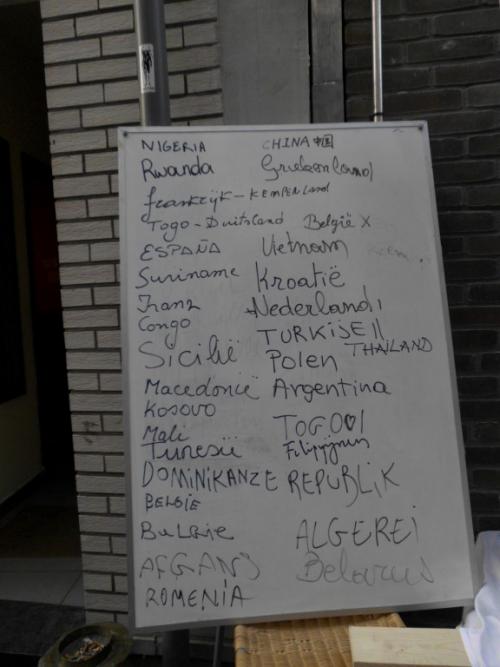 NIGERIA CHINA 中国
Rwanda Griekenland
frankrijk - KEMPENLand
Togo - Duitsland België X
ESPAÑA Vietnam
Suriname Kroatië
Iran Nederland
Congo TURKIJE II
Sicilië Polen THAILAND
Macedonië Argentina
Kosovo
Mali TOGO
Tunesië Filippijnen
DOMINIKANZE REPUBLIK
BELGIE
Bulgarie ALGEREI
AFGANS Belarus
ROMENIA